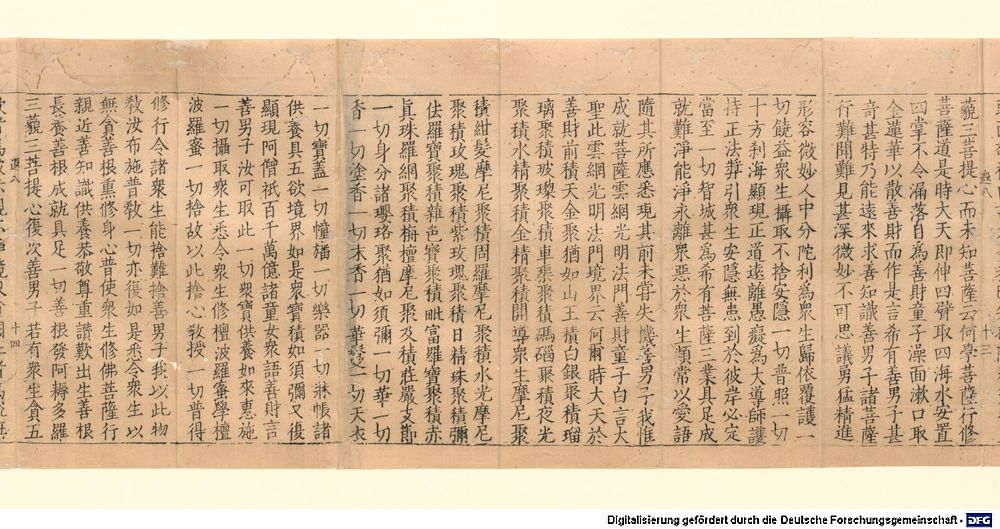 藐三菩提心而未知菩薩云何學菩薩行修
菩薩道是時大天即伸四臂取四海水安置
四掌不令漏落自為善財童子澡面漱口取
金蓮華以散善財而作是言希有善男子甚
奇甚特乃能遠來求善知識善男子諸菩薩
行難聞難見甚深微妙不可思議勇猛精進
形容微妙人中分陀利為衆生歸依覆護一
切饒益衆生攝取不捨安隱一切普照一切
十方刹海顯現正道遠離愚癡為大導師護
持正法將引衆生安隱無患到於彼岸必定
當至一切智城甚為希有菩薩三業具足成
就難淨能淨永離衆惡於衆生類常以愛語
隨其所應悉現其前未嘗失機善男子我惟
成就菩薩雲網光明法門善財童子白言大
聖此雲網光明法門境界云何爾時大天於
善財前積天金聚猶如山王積白銀聚積瑠
璃聚積玻瓈聚積車𤦲聚積碼碯聚積夜光
聚積水精聚積火金精聚積開導衆生摩尼聚
積紺髮摩尼聚積周羅摩尼聚積水光摩尼
聚積玫瑰聚積紫玫瑰聚積日精珠聚積彌
佉羅寶聚積雜色寶聚積毗富羅寶聚積亦
眞珠羅網聚積栴檀摩尼聚及積莊嚴支節
一切身分諸瓔珞聚猶如須彌一切華一切
香一切塗香一切末香一切華鬘一切天衣
一切寶蓋一切幢旛一切樂器一切牀帳諸
供養具五欲境界如是衆寶積如須彌又復
顯現阿僧祇百千萬億諸童女衆語善財言
善男子汝可取此一切衆寶供養如來惠施
一切攝取衆生悉令衆生修檀波羅蜜學檀
波羅蜜一切捨故以此捨心教授一切普得
修行令諸衆生能捨難捨善男子我以此物
敎汝布施普敎一切亦復如是悉令衆生以
無貪善根熏修身心普使衆生修佛菩薩行
親近善知識供養恭敬尊重讚歎出生善根
長養善根成就具足一切善根發阿耨多羅
十四
三藐三菩提心復次善男子若有衆生貪五
Digitalisierung gefördert durch die Deutsche Forschungsgemeinschaft - DFG